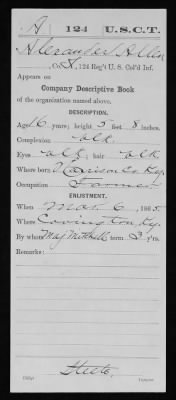 A | 124 | U.S.C.T.
Alexander Allen
Co. K, 124 Reg't U. S. Col'd Inf.
Appears on
Company Descriptive Book
of the organization named above.
DESCRIPTION.
Age 16 years; height 5 feet 8 inches.
Complexion blk.
Eyes blk; hair blk.
Where born Harrison Co Ky.
Occupation Farmer
ENLISTMENT.
When Mar. 6, 1865.
Where Covington Ky.
By whom Maj Mitchell term 3 y'rs.
Remarks:
Copyist.